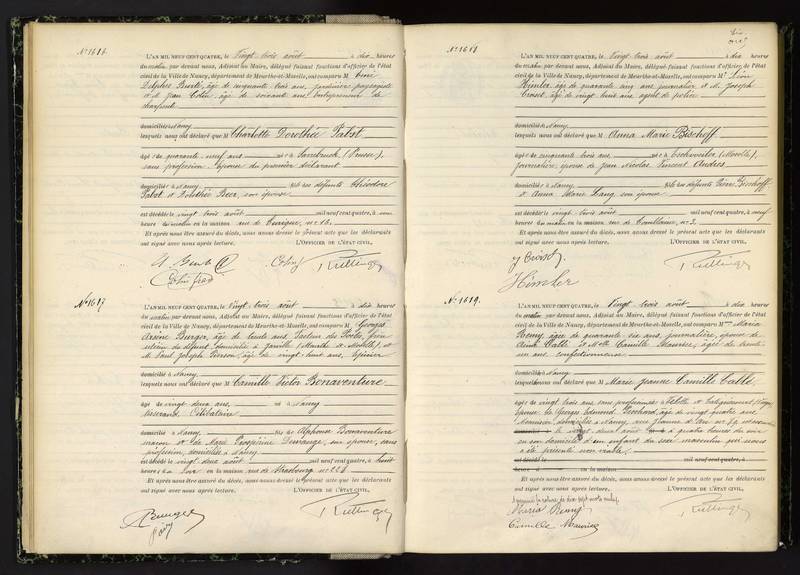 N° 1616.
L'AN MIL NEUF CENT QUATRE, le Vingt trois août à dix heures
du matin par devant nous, Adjoint au Maire, délégué faisant fonctions d'officier de l'état
civil de la Ville de Nancy, département de Meurthe-et-Moselle, ont comparu M
âgé de cinquante trois ans, jardinier paysagiste
et M Jean Colin, âgé de soixante ans, entrepreneur de
charpente
domiciliés à Nancy
lesquels nous ont déclaré que M Charlotte Dorothée Pabst
âgée de quarante neuf ans née à Sarrebruck (Prusse),
sans profession, épouse du premier déclarant
domiciliée à Nancy fille des défunts Théodore
Pabst et Dorothée Beer, son épouse
est décédée le vingt trois août mil neuf cent quatre, à
heure du matin en la maison rue de
Et après nous être assuré du décès, nous avons dressé le présent acte que les déclarants
ont signé avec nous après lecture. L'OFFICIER DE L'ÉTAT CIVIL,
Colin
N° 1617
L'AN MIL NEUF CENT QUATRE, le Vingt trois août à dix heures
du matin par devant nous, Adjoint au Maire, délégué faisant fonctions d'officier de l'état
civil de la Ville de Nancy, département de Meurthe-et-Moselle, ont comparu M Georges
Burger, âgé de trente ans, facteur des Postes, frère
utérin du défunt, domicilié à Jarville (Meurthe et Moselle), et
M Paul Joseph âgé de vingt huit ans, épicier
domicilié à Nancy
lesquels nous ont déclaré que M Camille Victor Bonaventure
âgé de vingt deux ans, né à Nancy
Célibataire
domicilié à Nancy fils de Alphonse Bonaventure
maçon et de Marie Joséphine son épouse, sans
profession, domiciliés à Nancy
est décédé le vingt deux août mil neuf cent quatre, à huit
heures du soir en la maison rue de Strasbourg n°
Et après nous être assuré du décès, nous avons dressé le présent acte que les déclarants
ont signé avec nous après lecture. L'OFFICIER DE L'ÉTAT CIVIL,
N° 1618
L'AN MIL NEUF CENT QUATRE, le Vingt trois août à dix heures
du matin par devant nous, Adjoint au Maire, délégué faisant fonctions d'officier de l'état
civil de la Ville de Nancy, département de Meurthe-et-Moselle, ont comparu M Léon
Himler, âgé de quarante cinq ans journalier et M. Joseph
âgé de vingt huit ans agent de police
domiciliés à Nancy
lesquels nous ont déclaré que M Anna Marie Bischoff
âgée de cinquante trois ans née à Eschviler (Moselle),
journalière, épouse de Jean Nicolas Vincent Andres
domiciliée à Nancy fille des défunts Pierre Bischoff
et Anna Marie Lang son épouse
est décédée le vingt trois août mil neuf cent quatre, à neuf
heures du matin en la maison rue de
Et après nous être assuré du décès, nous avons dressé le présent acte que les déclarants
ont signé avec nous après lecture. L'OFFICIER DE L'ÉTAT CIVIL,
Himler
N° 1619.
L'AN MIL NEUF CENT QUATRE, le Vingt trois août à dix heures
du matin par devant nous, Adjoint au Maire, délégué faisant fonctions d'officier de l'état
civil de la Ville de Nancy, département de Meurthe-et-Moselle, ont comparu Mme Marie
Remy âgée de quarante six ans, journalière, épouse de
et Melle Camille Maurice, âgée de trente
un ans confectionneuse
domiciliées à Nancy
lesquels nous ont déclaré que M Marie Jeanne Camille Callé,
âgée de vingt trois ans, sans profession, née à
épouse de Georges Edmond âgé de vingt quatre ans
domiciliés à Nancy, rue Jeanne d'Arc
vingt deux août à quatre heures du soir
en son domicile d'un enfant du sexe masculin qui nous
a été présenté non viable.
est décédé le mil neuf cent quatre, à
heure d en la maison
Et après nous être assuré du décès, nous avons dressé le présent acte que les déclarants
ont signé avec nous après lecture. L'OFFICIER DE L'ÉTAT CIVIL,
Maria Remy
Camille Maurice